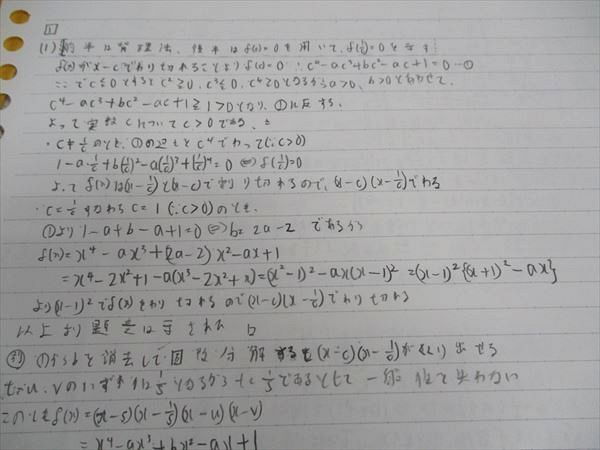 1
(1) 前半は背理法、後半はf(c)=0を用いて、f(1/c)=0を示す
f(x)がx-cでわり切れることよりf(c)=0 ∴c⁴-ac³+bc²-ac+1=0…①
ここでc≦0とするとc²≧0, c³≦0, c⁴≧0となるからa>0, b>0とあわせて、
c⁴-ac³+bc²-ac+1≧1>0となり、①に反する。
よって実数cについてc>0である。
・c≠1/cのとき、①の辺々をc⁴でわって(∵c>0)
1-a・1/c+b(1/c)²-a(1/c)³+(1/c)⁴=0 ⇔ f(1/c)=0
よってf(x)は(x-1/c)と(x-c)で割り切れるので、(x-c)(x-1/c)でわる
・c=1/c すなわちc=1(∵c>0)のとき、
①より1-a+b-a+1=0 ⇔ b=2a-2 であるから
f(x)=x⁴-ax³+(2a-2)x²-ax+1
=x⁴-2x²+1-a(x³-2x²+x)=(x²-1)²-ax(x-1)²=(x-1)²{(x+1)²-ax}
より(x-1)²でf(x)をわり切れるので(x-c)(x-1/c)でわり切れる
以上より題意は示された □
①からbを消去して因数分解すると(x-c)(x-1/c)がくくり出せる
t, u, vのいずれかは1/sとなるからt=1/sであるとして一般性を失わない
このときf(x)=(x-s)(x-1/s)(x-u)(x-v)
=x⁴-ax³+bx²-ax+1